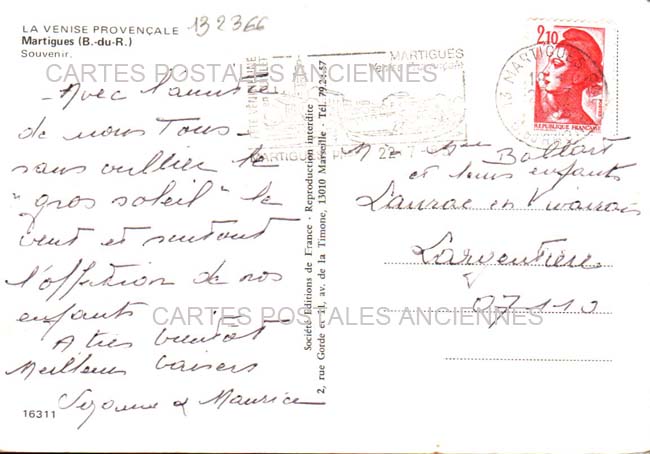 132366
LA VENISE PROVENÇALE
Martigues (B.-du-R.)
Souvenir.
CARTES POSTALES ANCIENNES
- Avec l'amitié
de nous Tous -
sans oublier le
"gros soleil" le
vent et surtout
l'affection de nos
enfants
A très bientôt
Meilleurs baisers
Suzanne & Maurice
16311
Société Editions de France - Reproduction interdite
2, rue Gorde et 11, av. de la Timone, 13010 Marseille - Tél. 79.21.57
MARTIGUES
MARTIGUES
2,10
RÉPUBLIQUE FRANÇAISE
13 MARTIGUES
Mr & Mme
et leurs enfants
Laurac en Vivarais
Largentière
07110
CARTES POSTALES ANCIENNES